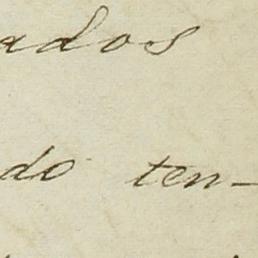 ados
do ten-